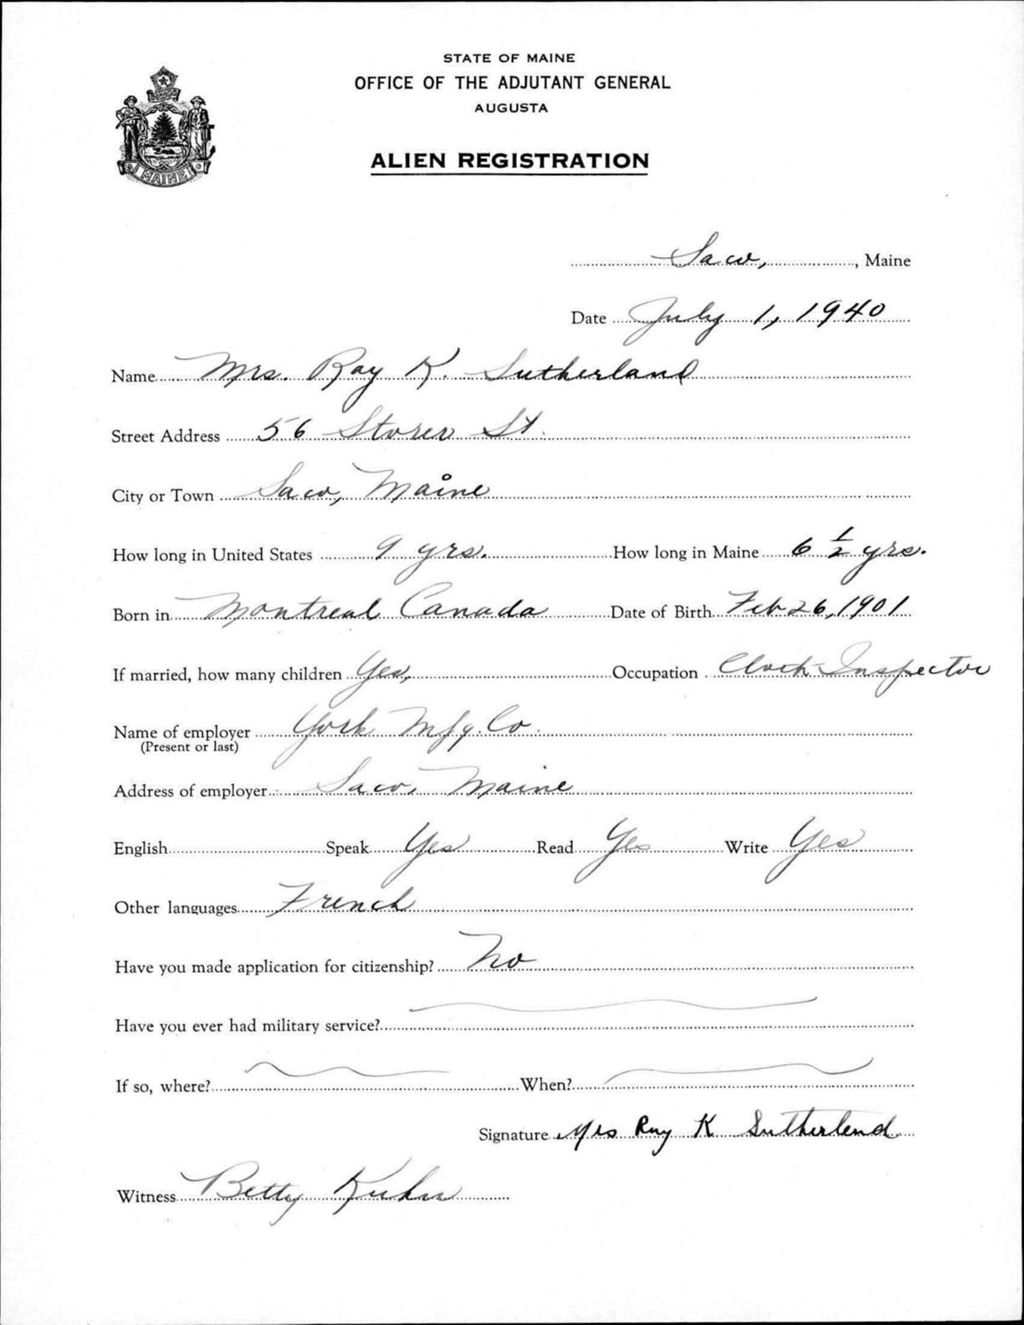 STATE OF MAINE
OFFICE OF THE ADJUTANT GENERAL
AUGUSTA
ALIEN REGISTRATION
MAINE
Saco, , Maine
Date July 1, 1940
Name Mrs. Ray K. Sutherland
Street Address 56 Storer St.
City or Town Saco, Maine
How long in United States 9 yrs. How long in Maine 6 1/2 yrs.
Born in Montreal Canada Date of Birth Feb 26, 1901
If married, how many children Yes, Occupation Cloth-Inspector
Name of employer York Mfg. Co.
(Present or last)
Address of employer Saco, Maine
English Speak Yes Read Yes Write Yes
Other languages French
Have you made application for citizenship? No
Have you ever had military service?
If so, where? When?
Signature Mrs Ray K Sutherland
Witness Betty Kuhn